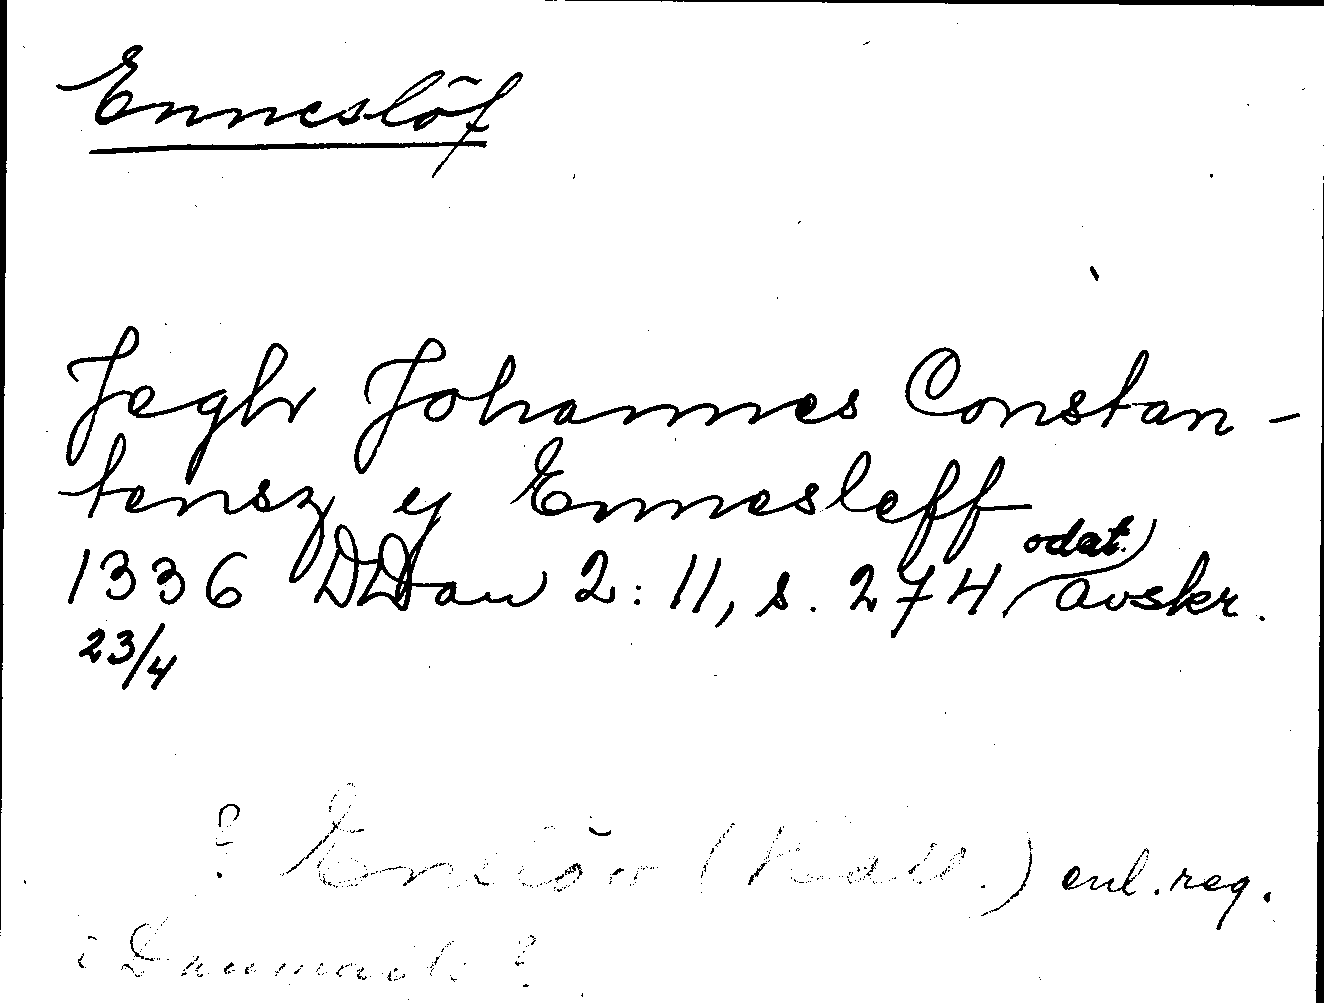 Enneslöf
Jeghr Johannes Constan-
tensz y Ennesleff
1336 DDan 2:11, s. 274 odat.) avskr.
23/4
? Enslöv (Hall.) enl. reg.
i Danmark?